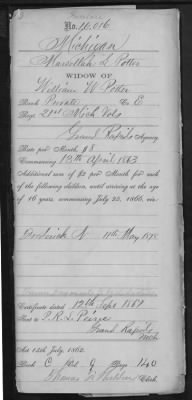 No. 16,016
Michigan
Marcellah L. Potter
WIDOW OF
William W. Potter
Rank Private Co. E
Reg. 21st Mich Vols
Grand Rapids Agency
Rate per Month, $8
Commencing 13th April 1863
Additional sum of $2 per Month for each
of the following children, until arriving at the age
of 16 years, commencing July 25, 1866, viz:
11th May 1878
Certificate dated 12th Sept 1867
Sent to P. R. L. Peirce
Grand Rapids
Mich
Act 14th July, 1862.
Book C Vol. Page 140
Clerk.